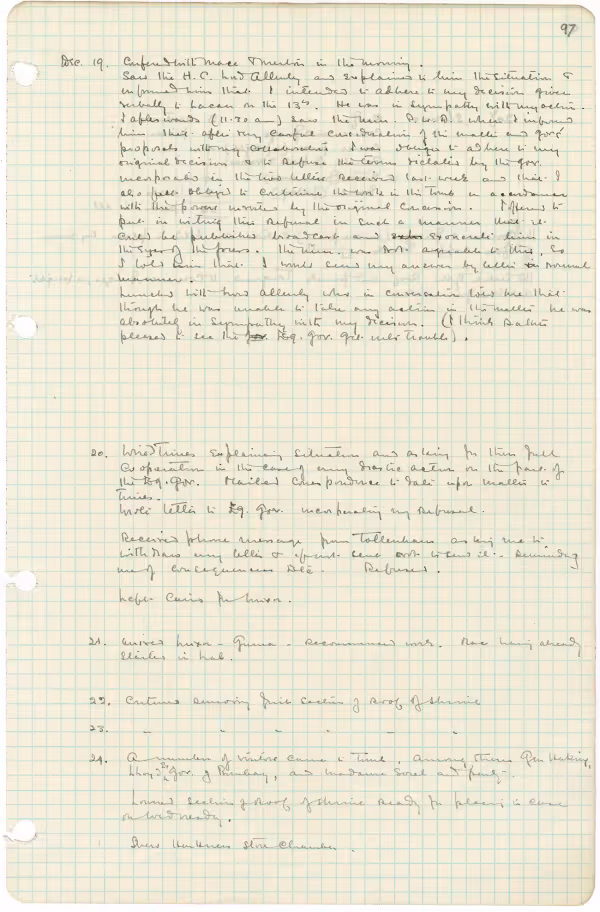 97
Dec. 19. Conferred with Mace & Newton in the morning.
Saw the H.C. Lord Allenby and explained to him the situation &
informed him that I intended to adhere to my decision given
verbally to Lacau on the 13th. He was in sympathy with my action.
I afterwards (11.30 am) saw the Min. P.W.D. when I informed
him that after very careful consideration of the matter and Gov's
proposals with my collaborators I was obliged to adhere to my
original decision & to refuse the terms dictated by the Gov.
incorporated in the two letters received last week and that I
also felt obliged to continue the work in the Tomb in accordance
with the powers invested by the original Concession. I offered to
put in writing this refusal in such a manner that it
could be published broadcast and exonerate him in
the eyes of the press. The Min. was not agreeable to this, so
I told him that I would send my answer by letter in normal
manner.
Lunched with Lord Allenby who in conversation told me that
though he was unable to take any action in the matter he was
absolutely in sympathy with my decision. (I think rather
pleased to see the Eg. Gov. get into trouble).
20. Wired Times explaining situation and asking for their full
Cooperation in the case of any drastic action on the part of
the Eg. Gov. Mailed correspondence to date upon matter to
Times.
Wrote letter to Eg. Gov. incorporating my refusal.
Received phone message from Tottenham asking me to
withdraw my letter & if not sent not to send it. Reminding
me of consequences etc. Refused.
Left Cairo for Luxor.
21. Arrived Luxor - Gurna - Recommenced work. Mace having already
started in lab.
22. Continued removing first section of roof of shrine
23. " " " " " "
24. A number of visitors came to Tomb, among them Gen. Haking,
Lloyd Ex Gov. of Bombay, and Madame Sorel and party.
Lowered section of roof of shrine ready for placing in case
on wood ready.
Store Chamber.